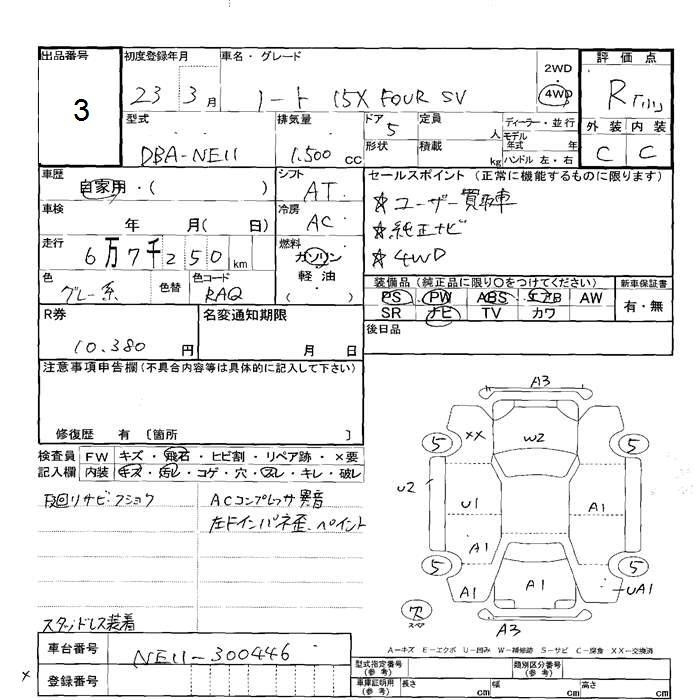 出品番号
3
初度登録年月
23 3月
車名・グレード
ノート 15X FOUR SV
2WD
4WD
評価点
R
外装 内装
C C
型式
DBA-NE11
排気量
1.500 cc
ドア
5
定員
人
ディーラー・並行
モデル年式 年
形状
積載
kg
ハンドル 左・右
車歴
自家用・( )
シフト
AT
車検
年 月( 日)
冷房
AC
走行
6万7千250 km
燃料
ガソリン
軽油
( )
色
グレー系
色替
色コード
RAQ
セールスポイント (正常に機能するものに限ります)
☆ユーザー買取車
☆純正ナビ
☆4WD
装備品 (純正品に限り○をつけてください)
PS PW ABS エアB AW
SR ナビ TV カワ
新車保証書
有・無
後日品
R券
10.380 円
名変通知期限
月 日
注意事項申告欄(不具合内容等は具体的に記入して下さい)
修復歴 有 〔箇所 〕
検査員記入欄
FW キズ・飛石・ヒビ割・リペア跡・×要
内装 キズ・汚レ・コゲ・穴・スレ・キレ・破レ
下回リサビ・フショク
ACコンプレッサ異音
左ドインパネ歪、ペイント
スタッドレス装着
A3
5 XX W2 5
U2 U1 A1
A1
5 A1 A1 UA1 5
欠
スペア
A3
A-キズ E-エクボ U-凹み W-補修跡 S-サビ C-腐食 XX-交換済
車台番号
NE11-300446
×
登録番号
型式指定番号
(参考)
類別区分番号
(参考)
車庫証明用
(参考)
長さ cm
幅 cm
高さ cm